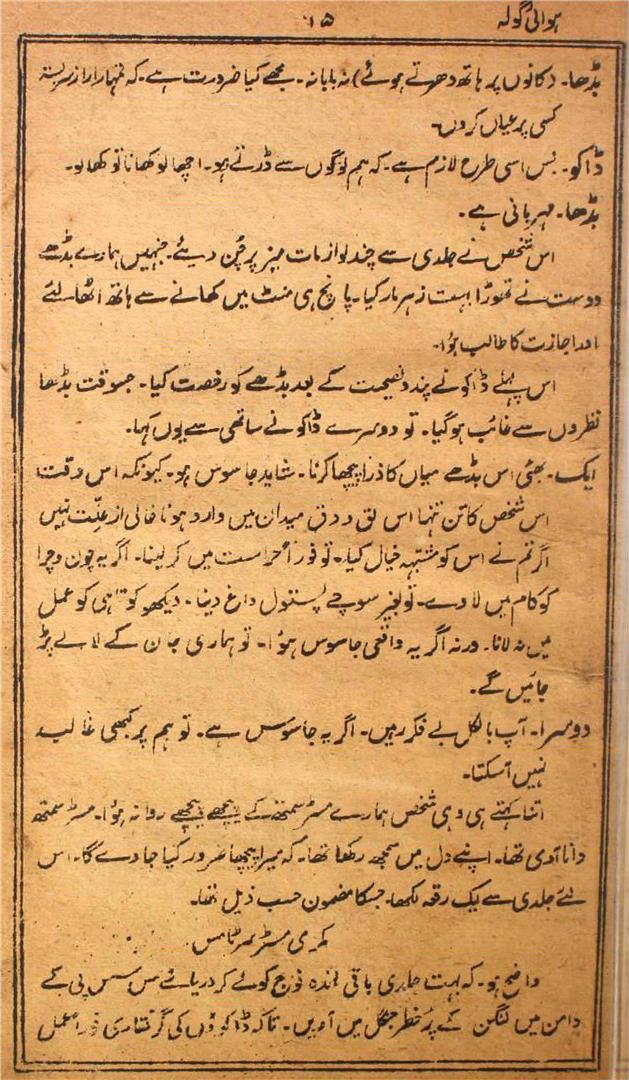 ہوائی گولہ ۱۵
بڈھا۔ (کانوں پر ہاتھ دھرتے ہوئے) نہ بابا نہ۔ مجھے کیا ضرورت ہے۔ کہ تمہارا راز سربستہ
کسی پر عیاں کروں۔
ڈاکو۔ بس اسی طرح لازم ہے۔ کہ ہم لوگوں سے ڈرتے رہو۔ اچھا لو کھانا تو کھا لو۔
بڈھا۔ مہربانی ہے۔
اس شخص نے جلدی سے چند لوازمات میز پر چُن دیئے۔ جنہیں ہمارے بڈھے
دوست نے تھوڑا بہت زہر مار کیا۔ پانچ ہی منٹ میں کھانے سے ہاتھ اٹھا لئے
اور اجازت کا طالب ہؤا۔
اس پہلے ڈاکو نے پند و نصیحت کے بعد بڈھے کو رخصت کیا۔ جسوقت بڈھا
نظروں سے غائب ہو گیا۔ تو دوسرے ڈاکو نے ساتھی سے یوں کہا۔
ایک۔ بھئی اس بڈھے میاں کا ذرا پیچھا کرنا۔ شاید جاسوس ہو۔ کیونکہ اس وقت
اس شخص کا تن تنہا اس لق و دق میدان میں وارد ہونا خالی از علّت نہیں
اگر تم نے اس کو مشتبہہ خیال کیا۔ تو فوراً حراست میں کر لینا۔ اگر یہ چون و چرا
کو کام میں لاوے۔ تو بغیر سوچے پستول داغ دینا۔ دیکھو کوتاہی کو عمل
میں نہ لانا۔ ورنہ اگر یہ واقعی جاسوس ہؤا۔ تو ہماری جان کے لالے پڑ
جائیں گے۔
دوسرا۔ آپ بالکل بے فکر رہیں۔ اگر یہ جاسوس ہے۔ تو ہم پر کبھی غالب
نہیں آ سکتا۔
اتنا کہتے ہی وہی شخص ہمارے مسٹر سمتھ کے پیچھے پیچھے روانہ ہؤا۔ مسٹر سمتھ
دانا آدمی تھا۔ اپنے دل میں سمجھ رکھا تھا۔ کہ میرا پیچھا ضرور کیا جاوے گا۔ اس
لئے جلدی سے یک رقعہ لکھا۔ جسکا مضمون حسب ذیل تھا۔
مکرمی مسٹر
واضح ہو۔ کہ بہت جلدی باقی ماندہ فوج کو لے کر دریائے مس سس پی کے
دامن میں لنکن کے پُر خطر جنگل میں آویں۔ تاکہ ڈاکوؤں کی گرفتاری فوراً عمل